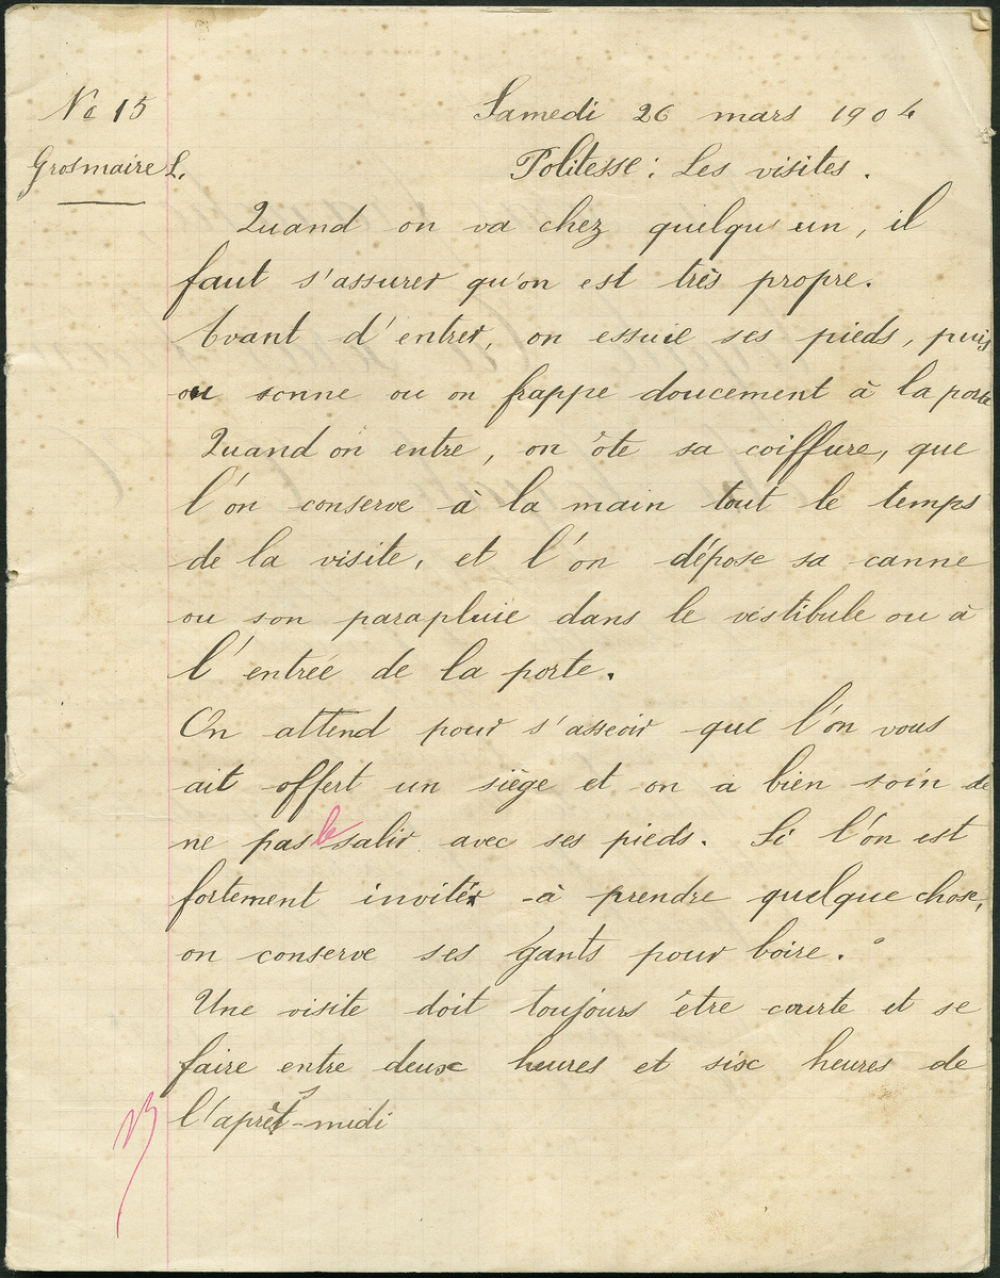 No 15
Samedi 26 mars 1904
Grosmaire L.
Politesse : Les visites.
Quand on va chez quelqu'un, il
faut s'assurer qu'on est très propre.
Avant d'entrer, on essuie ses pieds, puis
on sonne ou on frappe doucement à la porte
Quand on entre, on ôte sa coiffure, que
l'on conserve à la main tout le temps
de la visite, et l'on dépose sa canne
ou son parapluie dans le vestibule ou à
l'entrée de la porte.
On attend pour s'asseoir que l'on vous
ait offert un siège et on a bien soin de
ne pas le salir avec ses pieds. Si l'on est
fortement invité à prendre quelque chose,
on conserve ses gants pour boire.
Une visite doit toujours être courte et se
faire entre deux heures et six heures de
l'après-midi